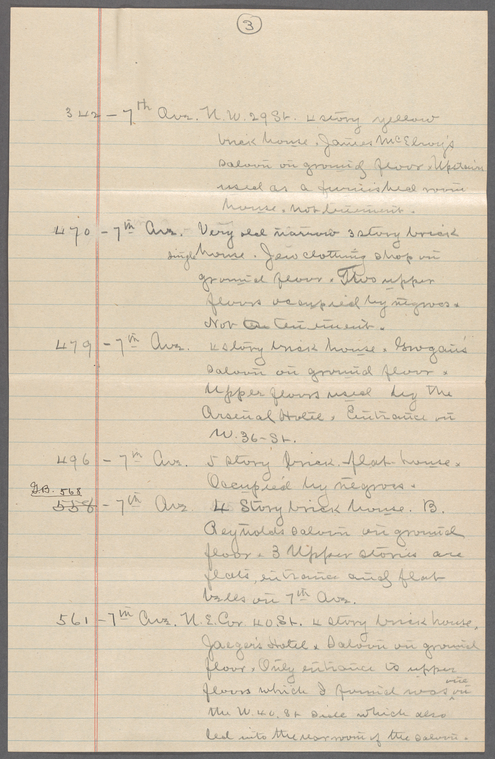 3
342 - 7th Ave. N.W. 29 St. 4 story yellow
brick house. James McElroy's
saloon on ground floor. Upstairs
used as a furnished room
house, not tenement.
470 - 7th Ave. Very old narrow 3 story brick
single house. Jew clothing shop on
ground floor. Two upper
floors occupied by negroes.
Not a tenement.
479 - 7th Ave. 4 story brick house. Grogan's
saloon on ground floor.
Upper floors used by the
Arsenal Hotel. Entrance on
W. 36 - St.
496 - 7th Ave. 5 story brick flat house.
Occupied by negroes.
G.B. 568
558 - 7th Ave 4 Story brick house. B.
Reynolds saloon on ground
floor. 3 Upper stories are
flats, entrance and flat
bells on 7th Ave.
561 - 7th Ave. N.E. Cor 40 St. 4 story brick house.
Jaeger's Hotel. Saloon on ground
floor. Only entrance to upper
floors which I found was one on
the W. 40. St side which also
led into the rear room of the saloon.